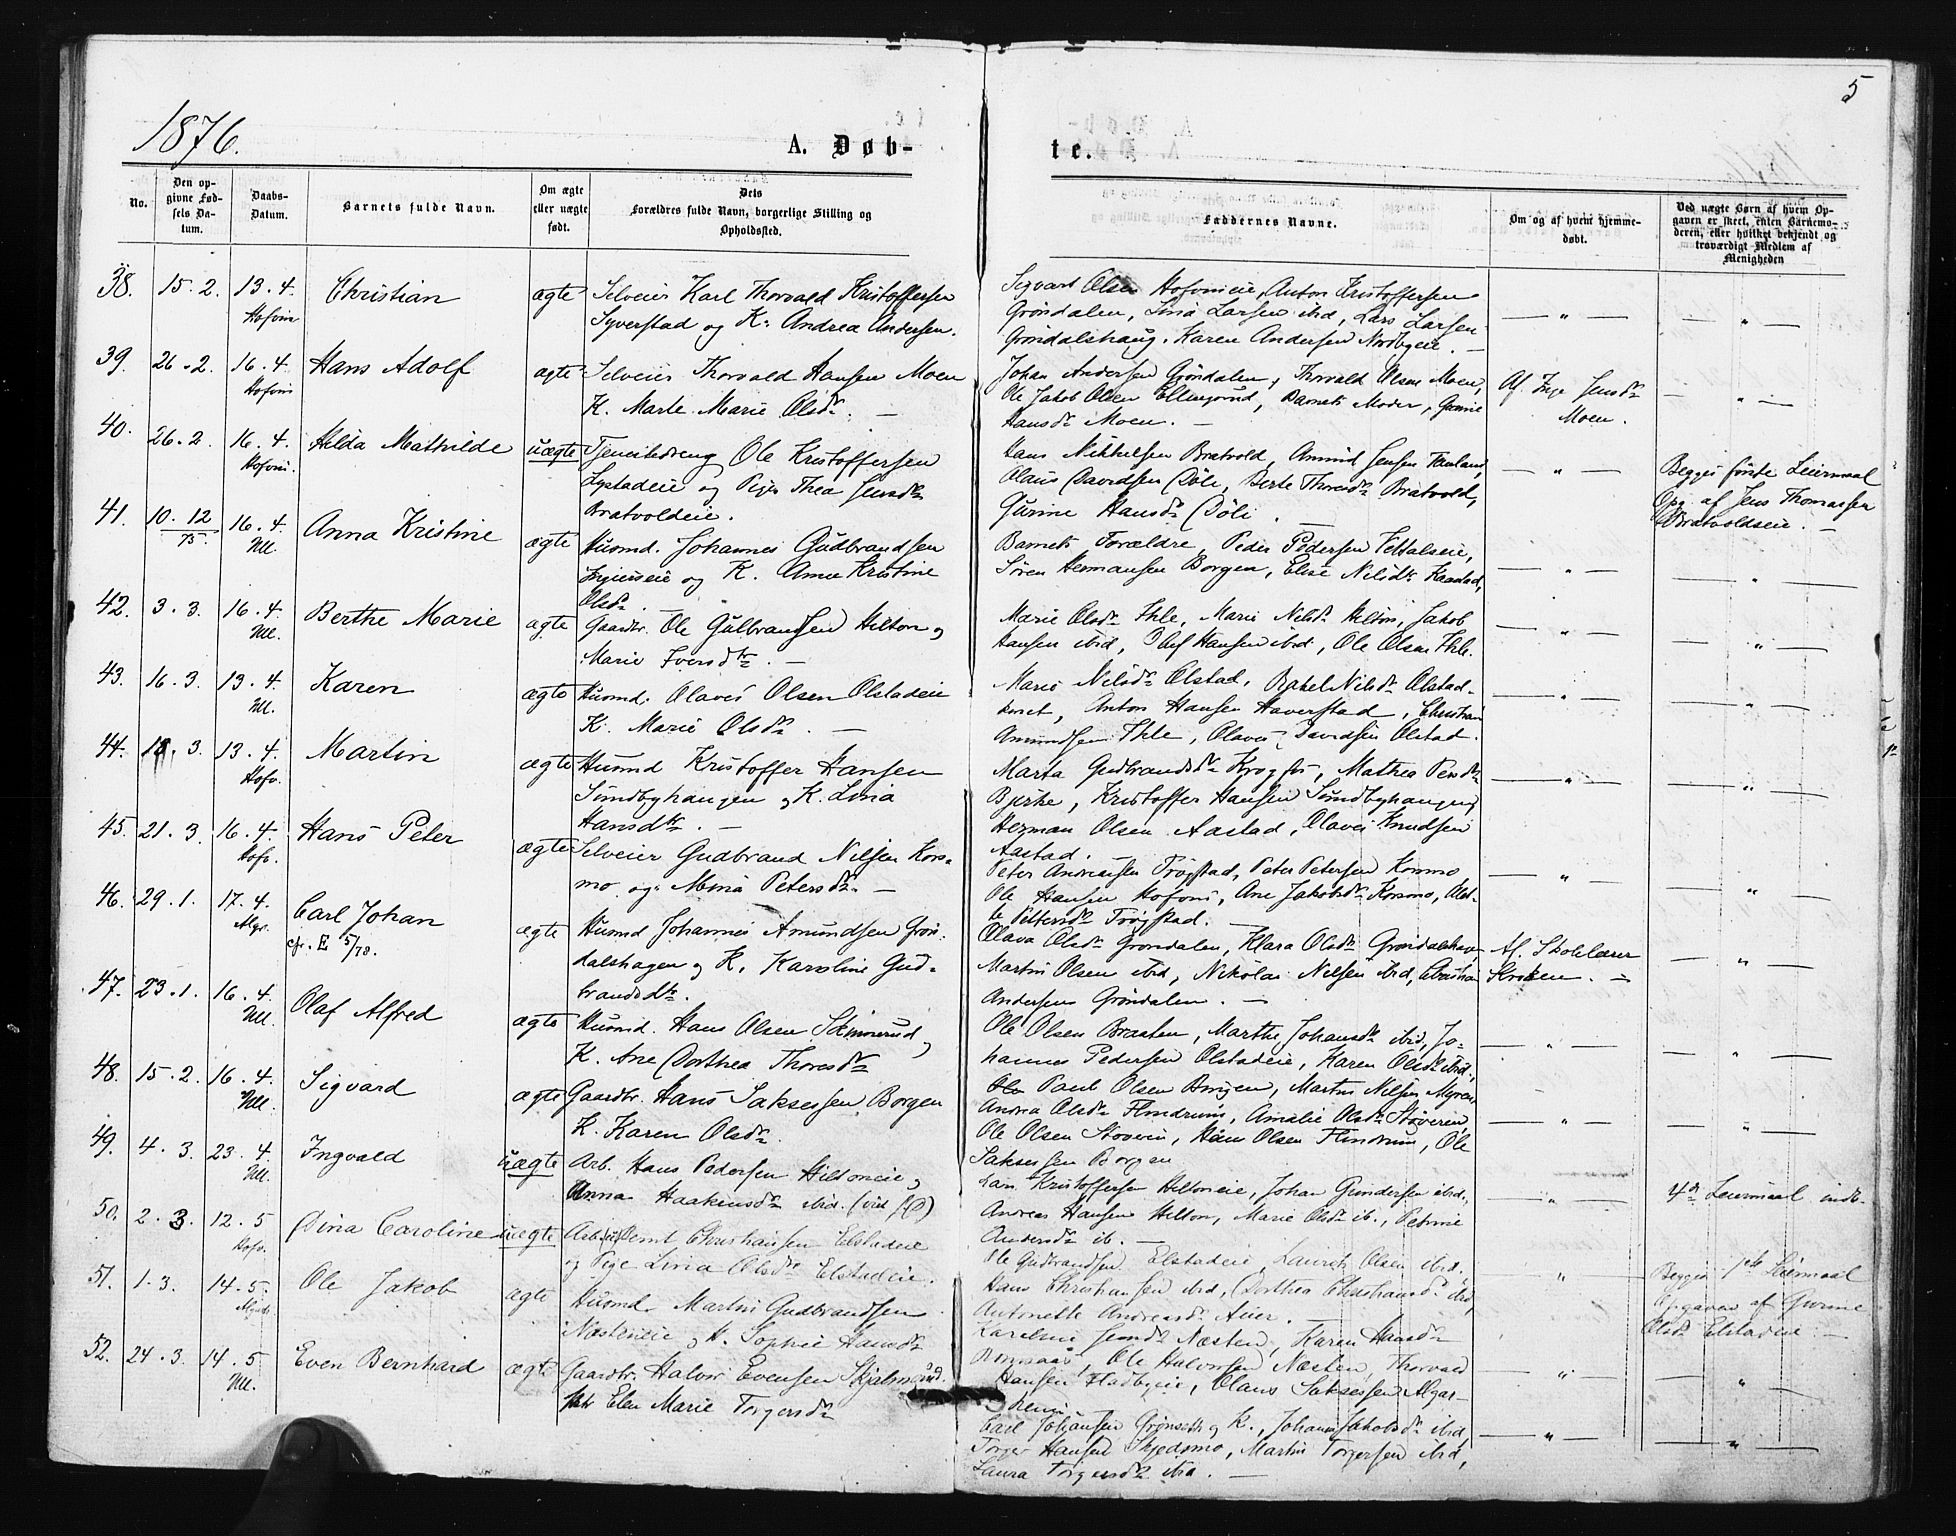 5
1876.
A. Døb-
te.
No.
Den op-
givne Fød-
sels Da-
tum.
Daabs-
Datum.
Barnets fulde Navn.
Om ægte
eller uægte
født.
Dets
Forældres fulde Navn, borgerlige Stilling og
Opholdssted.
Faddernes Navne.
Om og af hvem hjemme-
døbt.
Ved uægte Børn af hvem Op-
gaven er skeet, enten Barnemo-
deren, eller hvilket bekjendt og
troværdigt Medlem af
Menigheden
38. 15. 2. 13. 4. Christian ægte Selveier Karl Thorvald Kristoffersen
Hofvin Syverstad og K: Andrea Andersen.
Sigvart Olsen Hofvineie, Anton Kristoffersen
Grøndalen, Lina Larsen ibid, Lars Larsen
Grøndalshaug, Karen Andersen Nordbyeie. —
39. 26. 2. 16. 4. Hans Adolf ægte Selveier Thorvald Hansen Moen
Hofvin K. Marte Marie Olsdr. —
Johan Andersen Grøndalen, Thorvald Olsen Moen,
Ole Jakob Olsen Ellingsrud, Barnets Moder, Gurine
Hansdr Moen. —
Af Inge Jensdr
Moen.
40. 26. 2. 16. 4. Hilda Mathilde uægte Tjenestedreng Ole Kristoffersen
Hofvin. Lystadeie og Pige Thea Jensdr
Bratvoldeie.
Hans Mikkelsen Bratvold, Amund Jensen
Olaus Davidsen Døli, Berte Thoresdr Bratvold,
Gurine Hansdr Døli. —
Begges første Leiermaal
Opg. af Jens Thomassen
Bratvoldseie. —
41. 10. 12/75. 16. 4. Anna Kristine ægte Husmd. Johannes Gudbrandsen
Ull. og K. Anne Kristine
Olsdr.
Barnets Forældre, Peder Pedersen
Søren Hermansen Borgen, Elise Nilsdr
42. 3. 3. 16. 4. Berthe Marie ægte Gaardbr. Ole Gulbrandsen Hilton og
Ull. Marie Iversdtr. —
Marie Olsdr Ihle, Marie Nilsdr Hilton, Jakob
Hansen ibid, Olef Hansen ibid, Ole Olsen Ihle.
43. 16. 3. 13. 4. Karen ægte Husmd. Olaves Olsen Olstadeie
Ull. K. Marie Olsdr. —
Marie Nilsdr Olstad, Rakel Nilsdr Olstad-
Anton Hansen Haverstad, Christian
Amundsen Ihle, Olaves Davidsen Olstad.
44. 18. 3. 13. 4. Martin ægte Husmd Kristoffer Hansen
Hofv. Sundbyhaugen og K. Lina
Hansdtr. —
Marta Gudbrandsdr Krogfos, Mathea Persdr
Bjerke, Kristoffer Hansen Sundbyhaugen,
Herman Olsen Aastad, Olaves Knudsen
Aastad.
45. 21. 3. 16. 4. Hans Peter ægte Selveier Gudbrand Nilsen Kors-
Hofv. mo og Mina Petersdr. —
Peter Andreassen Trøgstad, Peter Petersen Korsmo,
Ole Hansen Hofvin, Ane Jakobsdr Korsmo,
Pettersdr Trøgstad. —
46. 29. 1. 17. 4. Carl Johan ægte Husmd Johannes Amundsen Grøn-
Algr. cfr. E 5/78. dalshagen og K. Karoline Gud-
brandsdtr.
Olava Olsdr Grøndalen, Klara Olsdr Grøndalshagen
Martin Olsen ibid, Nikolai Nilsen ibid, Christian
Andersen Grøndalen. —
Af Skolelærer
47. 23. 1. 16. 4. Olaf Alfred ægte Husmd. Hans Olsen
Ull. K. Ane Dorthea Thoresdr
Ole Olsen Braaten, Marthe Johansdr ibid, Jo-
hannes Pedersen Olstadeie, Karen Olsdr ibid,
48. 15. 2. 16. 4. Sigvard ægte Gaardbr. Hans Saksessen Borgen
Ull. K. Karen Olsdr.
Paul Olsen Borgen, Martin Nilsen Myren,
Andrea Olsdr Flindrum, Amalie Olsdr Støveren,
Ole Olsen Hans Olsen Flindrum, Ole
Saksessen Borgen
49. 4. 3. 23. 4. Ingvald uægte Arb. Hans Pedersen Hiltoneie,
Ull. Anna Haakensdr ibid.
Lars Kristoffersen Hiltoneie, Johan Gundersen ibid.,
Andreas Hansen Hilton, Marie Olsdr ib., Petrine
Andersdr ib. —
4de Leiermaal
50. 2. 3. 12. 5 Dina Caroline uægte Arb Bernt Christiansen Elstadeie
Hofv. og Pige Lina Olsdr Elstadeie.
Ole Gudbrandsen Elstadeie, Lauritz Olsen ibid.,
Hans Christiansen ibid, Dorthea Christiansdr ibid,
Antonette Andreasdr
Begges 1ste Leiermaal
Opgaven af Gurine
Olsdr Elstadeie —
51. 1. 3. 14. 5. Ole Jakob ægte Husmd. Martin Gudbrandsen
Næsteneie og K. Sophie Hansdr
Karelina Jensdr Næsten, Karen Hansdr
Ole Halvorsen Næsten, Thorvald
Hansen Fladbyeie, Olaus Saksessen Algar-
52. 24. 3. 14. 5 Even Bernhard ægte Gaardbr. Halvor Evensen
Ull. Elen Marie Torgersdr
Carl Johansen Grønseth og K., Johanne Jakobsdr ibid,
Torger Hansen Skjedsmo, Martin Torgersen ibid,
Laura Torgersdr ibid. —